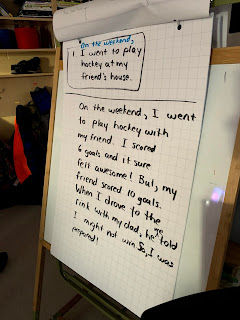 On the weekend,
I went to play
hockey at my
friend's house.
On the weekend, I went
to play hockey with
my friend. I scored
6 goals and it sure
felt awesome! But, my
friend scored 10 goals.
When I drove to the
rink with my dad, he told
me I might not win. So, I was
prepared!